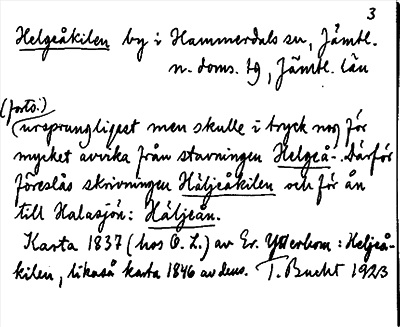 3
Helgeåkilen by i Hammerdals sn, Jämtl.
n. doms. tg, Jämtl. län
(forts:)
ursprungligast men skulle i tryck nog för
mycket avvika från stavningen Helgeå-. Därför
föreslås skrivningen Häljeåkilen och för ån
till Halasjön: Häljeån.
Karta 1837 (hos O. L.) av Er. Ytterbom: Heljeå-
kilen, likaså karta 1846 av dens. T. Bucht 1923